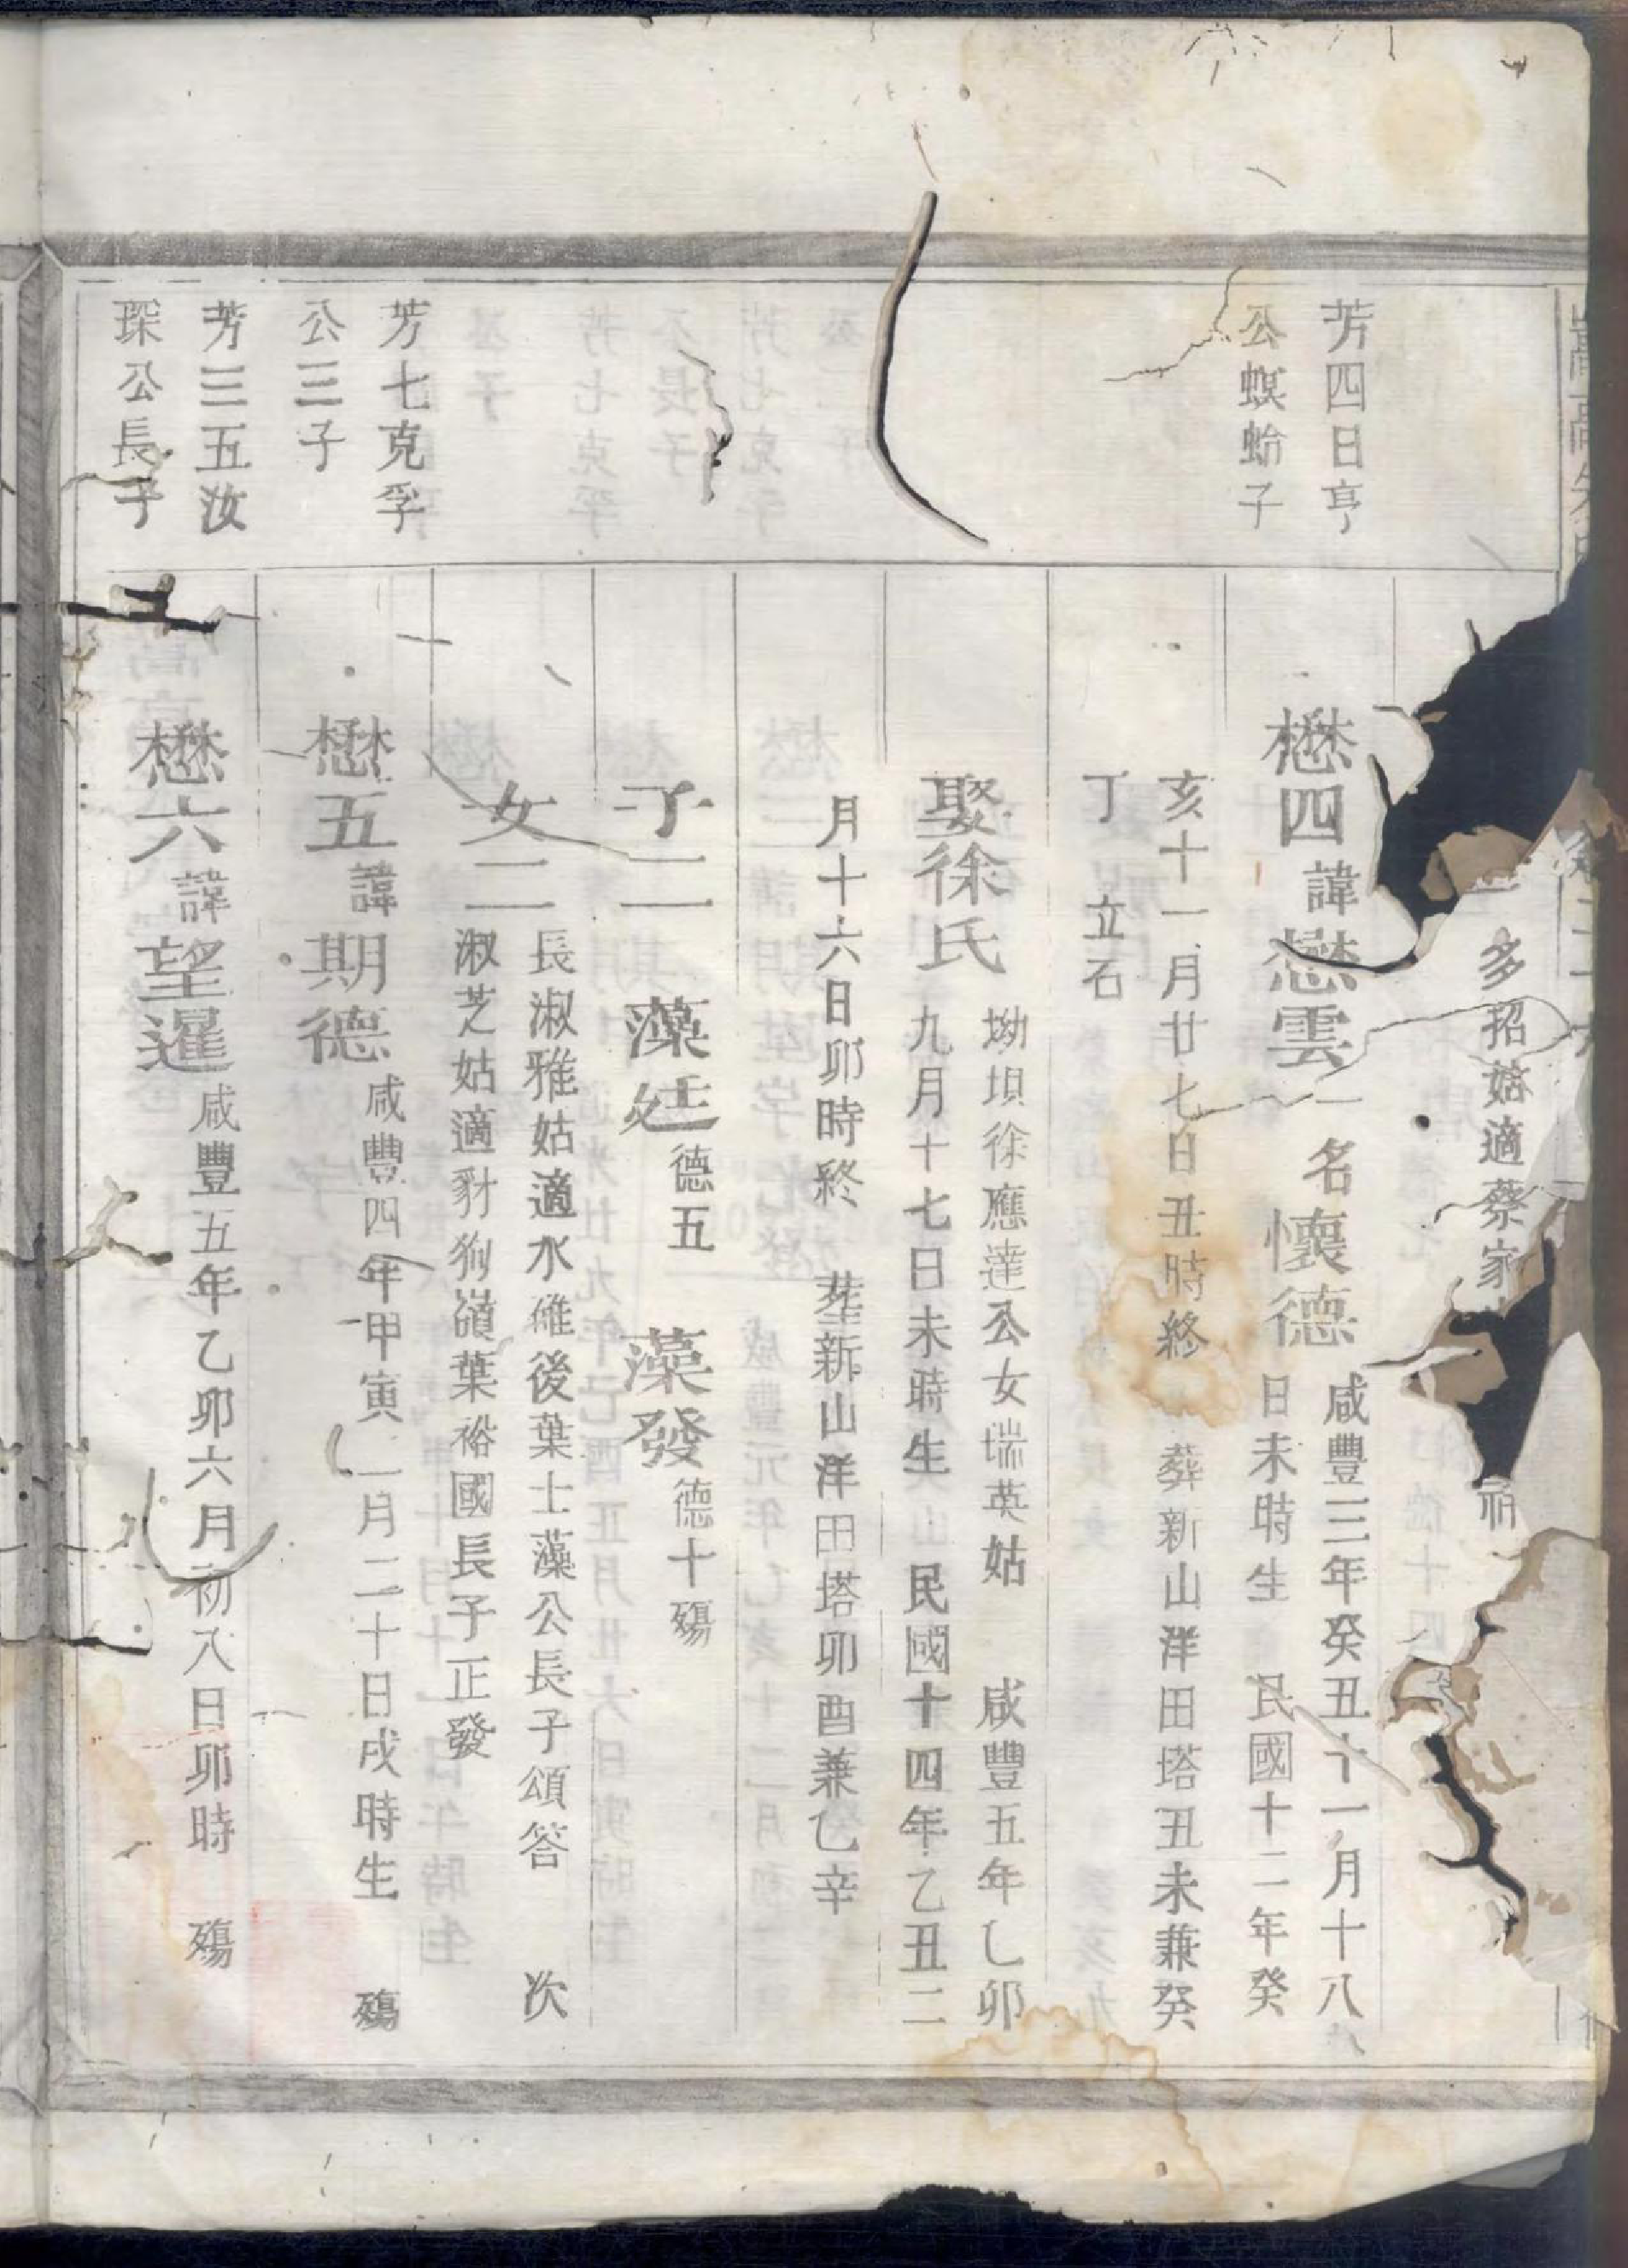 多招姑適蔡家
芳四日亨
公螟蛉子
懋四諱懋雲一名懷德咸豐三年癸丑十一月十八
日未時生 民國十二年癸
亥十一月廿七日丑時終 葬新山洋田塔丑未兼癸
丁 立石
娶徐氏坳垻徐應達公女瑞英姑 咸豐五年乙卯
九月十七日未時生 民國十四年乙丑二
月十六日卯時終 塟新山洋田塔卯酉兼乙辛
子二 藻廷德五 藻發德十殤
女二長淑雅姑適水碓後葉士藻公長子頌答 次
淑芝姑適豺狗嶺葉裕國長子正發
芳七克孚
公三子
懋五諱期德咸豐四年甲寅一月二十日戌時生 殤
芳三五汝
琛公長子
懋六諱望暹咸豐五年乙卯六月初八日卯時 殤